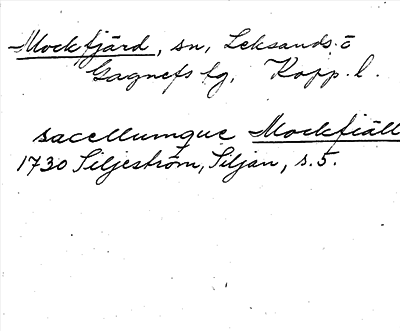 Mockfjärd, sn, Leksands o
Gagnefs tg, Kopp. l.
sacellumque Mockfiäll
1730 Siljeström, Siljan, s. 5.